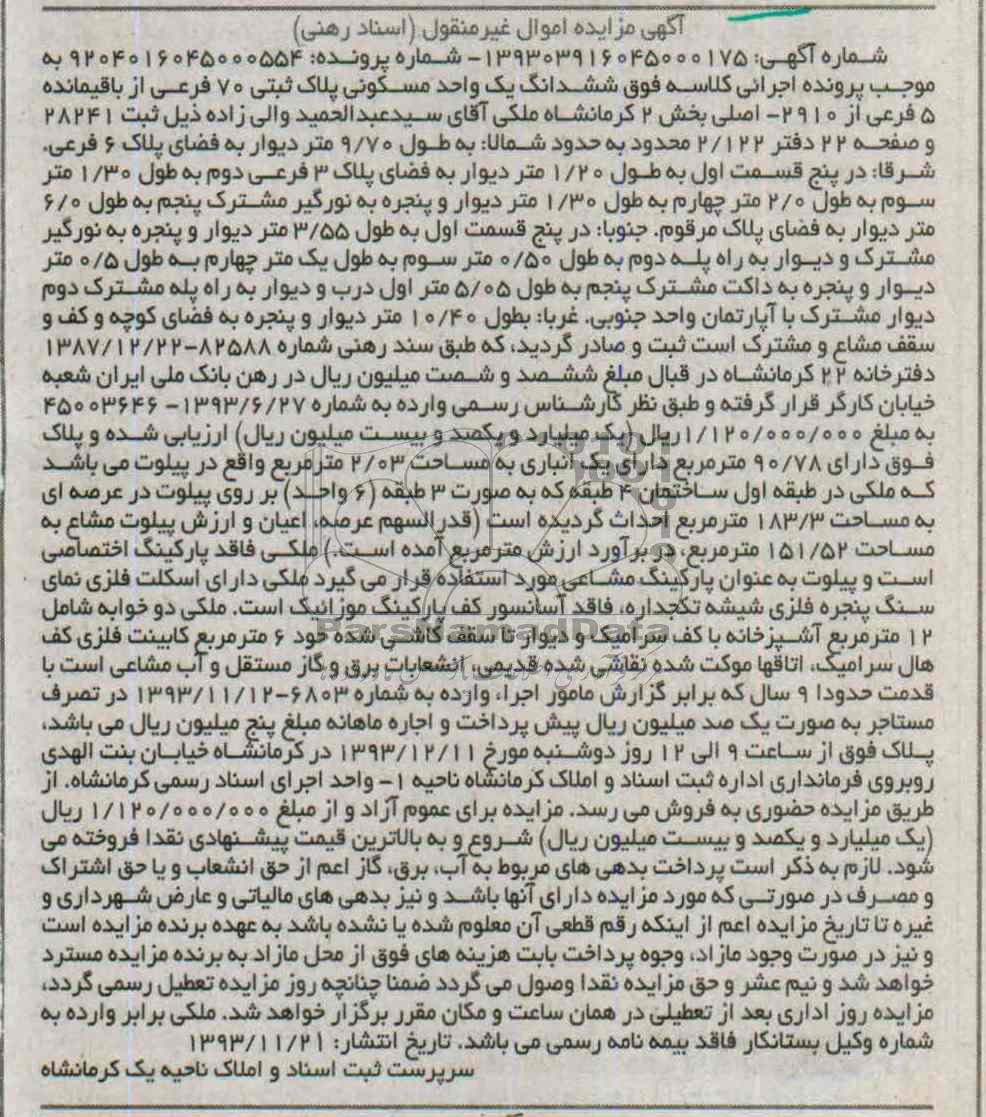 آگهی مزایده اموال غیرمنقول (اسناد رهنی)
شماره آگهی: ۱۳۹۳۰۳۹۱۶۰۴۵۰۰۰۱۷۵- شماره پرونده: ۹۲۰۴۰۱۶۰۴۵۰۰۰۵۵۴ به
موجب پرونده اجرائی کلاسه فوق ششدانگ یک واحد مسکونی پلاک ثبتی ۷۰ فرعی از باقیمانده
۵ فرعی از ۲۹۱۰- اصلی بخش ۲ کرمانشاه ملکی آقای سیدعبدالحمید والی زاده ذیل ثبت ۲۸۲۴۱
و صفحه ۲۲ دفتر ۲/۱۲۲ محدود به حدود شمالا: به طول ۹/۷۰ متر دیوار به فضای پلاک ۶ فرعی.
شرقا: در پنج قسمت اول به طول ۱/۲۰ متر دیوار به فضای پلاک ۳ فرعی دوم به طول ۱/۳۰ متر
سوم به طول ۲/۰ متر چهارم به طول ۱/۳۰ متر دیوار و پنجره به نورگیر مشترک پنجم به طول ۶/۰
متر دیوار به فضای پلاک مرقوم. جنوبا: در پنج قسمت اول به طول ۳/۵۵ متر دیوار و پنجره به نورگیر
مشترک و دیوار به راه پله دوم به طول ۰/۵۰ متر سوم به طول یک متر چهارم به طول ۰/۵ متر
دیوار و پنجره به داکت مشترک پنجم به طول ۵/۰۵ متر اول درب و دیوار به راه پله مشترک دوم
دیوار مشترک با آپارتمان واحد جنوبی. غربا: بطول ۱۰/۴۰ متر دیوار و پنجره به فضای کوچه و کف و
سقف مشاع و مشترک است ثبت و صادر گردید، که طبق سند رهنی شماره ۸۲۵۸۸-۱۳۸۷/۱۲/۲۲
دفترخانه ۲۲ کرمانشاه در قبال مبلغ ششصد و شصت میلیون ریال در رهن بانک ملی ایران شعبه
خیابان کارگر قرار گرفته و طبق نظر کارشناس رسمی وارده به شماره ۱۳۹۳/۶/۲۷- ۴۵۰۰۳۶۴۶
به مبلغ ۱/۱۲۰/۰۰۰/۰۰۰ریال (یک میلیارد و یکصد و بیست میلیون ریال) ارزیابی شده و پلاک
فوق دارای ۹۰/۷۸ مترمربع دارای یک انباری به مساحت ۲/۰۳ مترمربع واقع در پیلوت می باشد
که ملکی در طبقه اول ساختمان ۴ طبقه که به صورت ۳ طبقه (۶ واحد) بر روی پیلوت در عرصه ای
به مساحت ۱۸۳/۳ مترمربع احداث گردیده است (قدرالسهم عرصه، اعیان و ارزش پیلوت مشاع به
مساحت ۱۵۱/۵۲ مترمربع، در برآورد ارزش مترمربع آمده است.) ملکی فاقد پارکینگ اختصاصی
است و پیلوت به عنوان پارکینگ مشاعی مورد استفاده قرار می گیرد ملکی دارای اسکلت فلزی نمای
سنگ پنجره فلزی شیشه تکجداره، فاقد آسانسور کف پارکینگ موزائیک است. ملکی دو خوابه شامل
۱۲ مترمربع آشپزخانه با کف سرامیک و دیوار تا سقف کاشی شده خود ۶ مترمربع کابینت فلزی کف
هال سرامیک، اتاقها موکت شده نقاشی شده قدیمی، انشعابات برق و گاز مستقل و آب مشاعی است با
قدمت حدودا ۹ سال که برابر گزارش مامور اجرا، وارده به شماره ۶۸۰۳-۱۳۹۳/۱۱/۱۲ در تصرف
مستاجر به صورت یک صد میلیون ریال پیش پرداخت و اجاره ماهانه مبلغ پنج میلیون ریال می باشد،
پلاک فوق از ساعت ۹ الی ۱۲ روز دوشنبه مورخ ۱۳۹۳/۱۲/۱۱ در کرمانشاه خیابان بنت الهدی
روبروی فرمانداری اداره ثبت اسناد و املاک کرمانشاه ناحیه ۱- واحد اجرای اسناد رسمی کرمانشاه. از
طریق مزایده حضوری به فروش می رسد. مزایده برای عموم آزاد و از مبلغ ۱/۱۲۰/۰۰۰/۰۰۰ ریال
(یک میلیارد و یکصد و بیست میلیون ریال) شروع و به بالاترین قیمت پیشنهادی نقدا فروخته می
شود. لازم به ذکر است پرداخت بدهی های مربوط به آب، برق، گاز اعم از حق انشعاب و یا حق اشتراک
و مصرف در صورتی که مورد مزایده دارای آنها باشد و نیز بدهی های مالیاتی و عارض شهرداری و
غیره تا تاریخ مزایده اعم از اینکه رقم قطعی آن معلوم شده یا نشده باشد به عهده برنده مزایده است
و نیز در صورت وجود مازاد، وجوه پرداخت بابت هزینه های فوق از محل مازاد به برنده مزایده مسترد
خواهد شد و نیم عشر و حق مزایده نقدا وصول می گردد ضمنا چنانچه روز مزایده تعطیل رسمی گردد،
مزایده روز اداری بعد از تعطیلی در همان ساعت و مکان مقرر برگزار خواهد شد. ملکی برابر وارده به
شماره وکیل بستانکار فاقد بیمه نامه رسمی می باشد. تاریخ انتشار: ۱۳۹۳/۱۱/۲۱
سرپرست ثبت اسناد و املاک ناحیه یک کرمانشاه
ParsNamadData